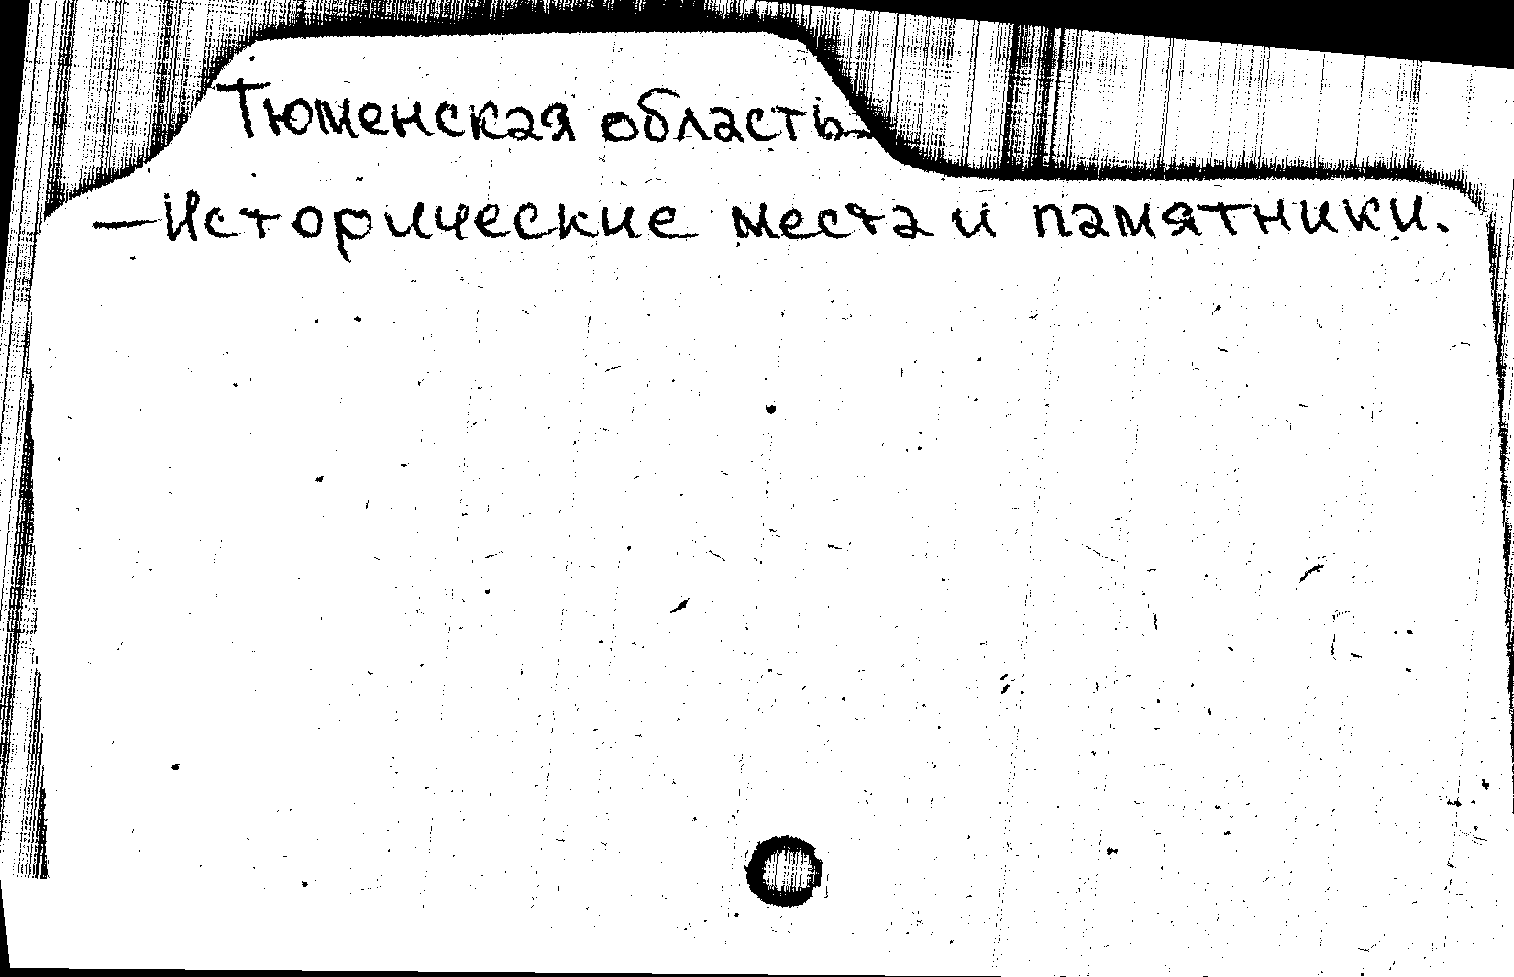 Тюменская область-
—Исторические места и памятники.